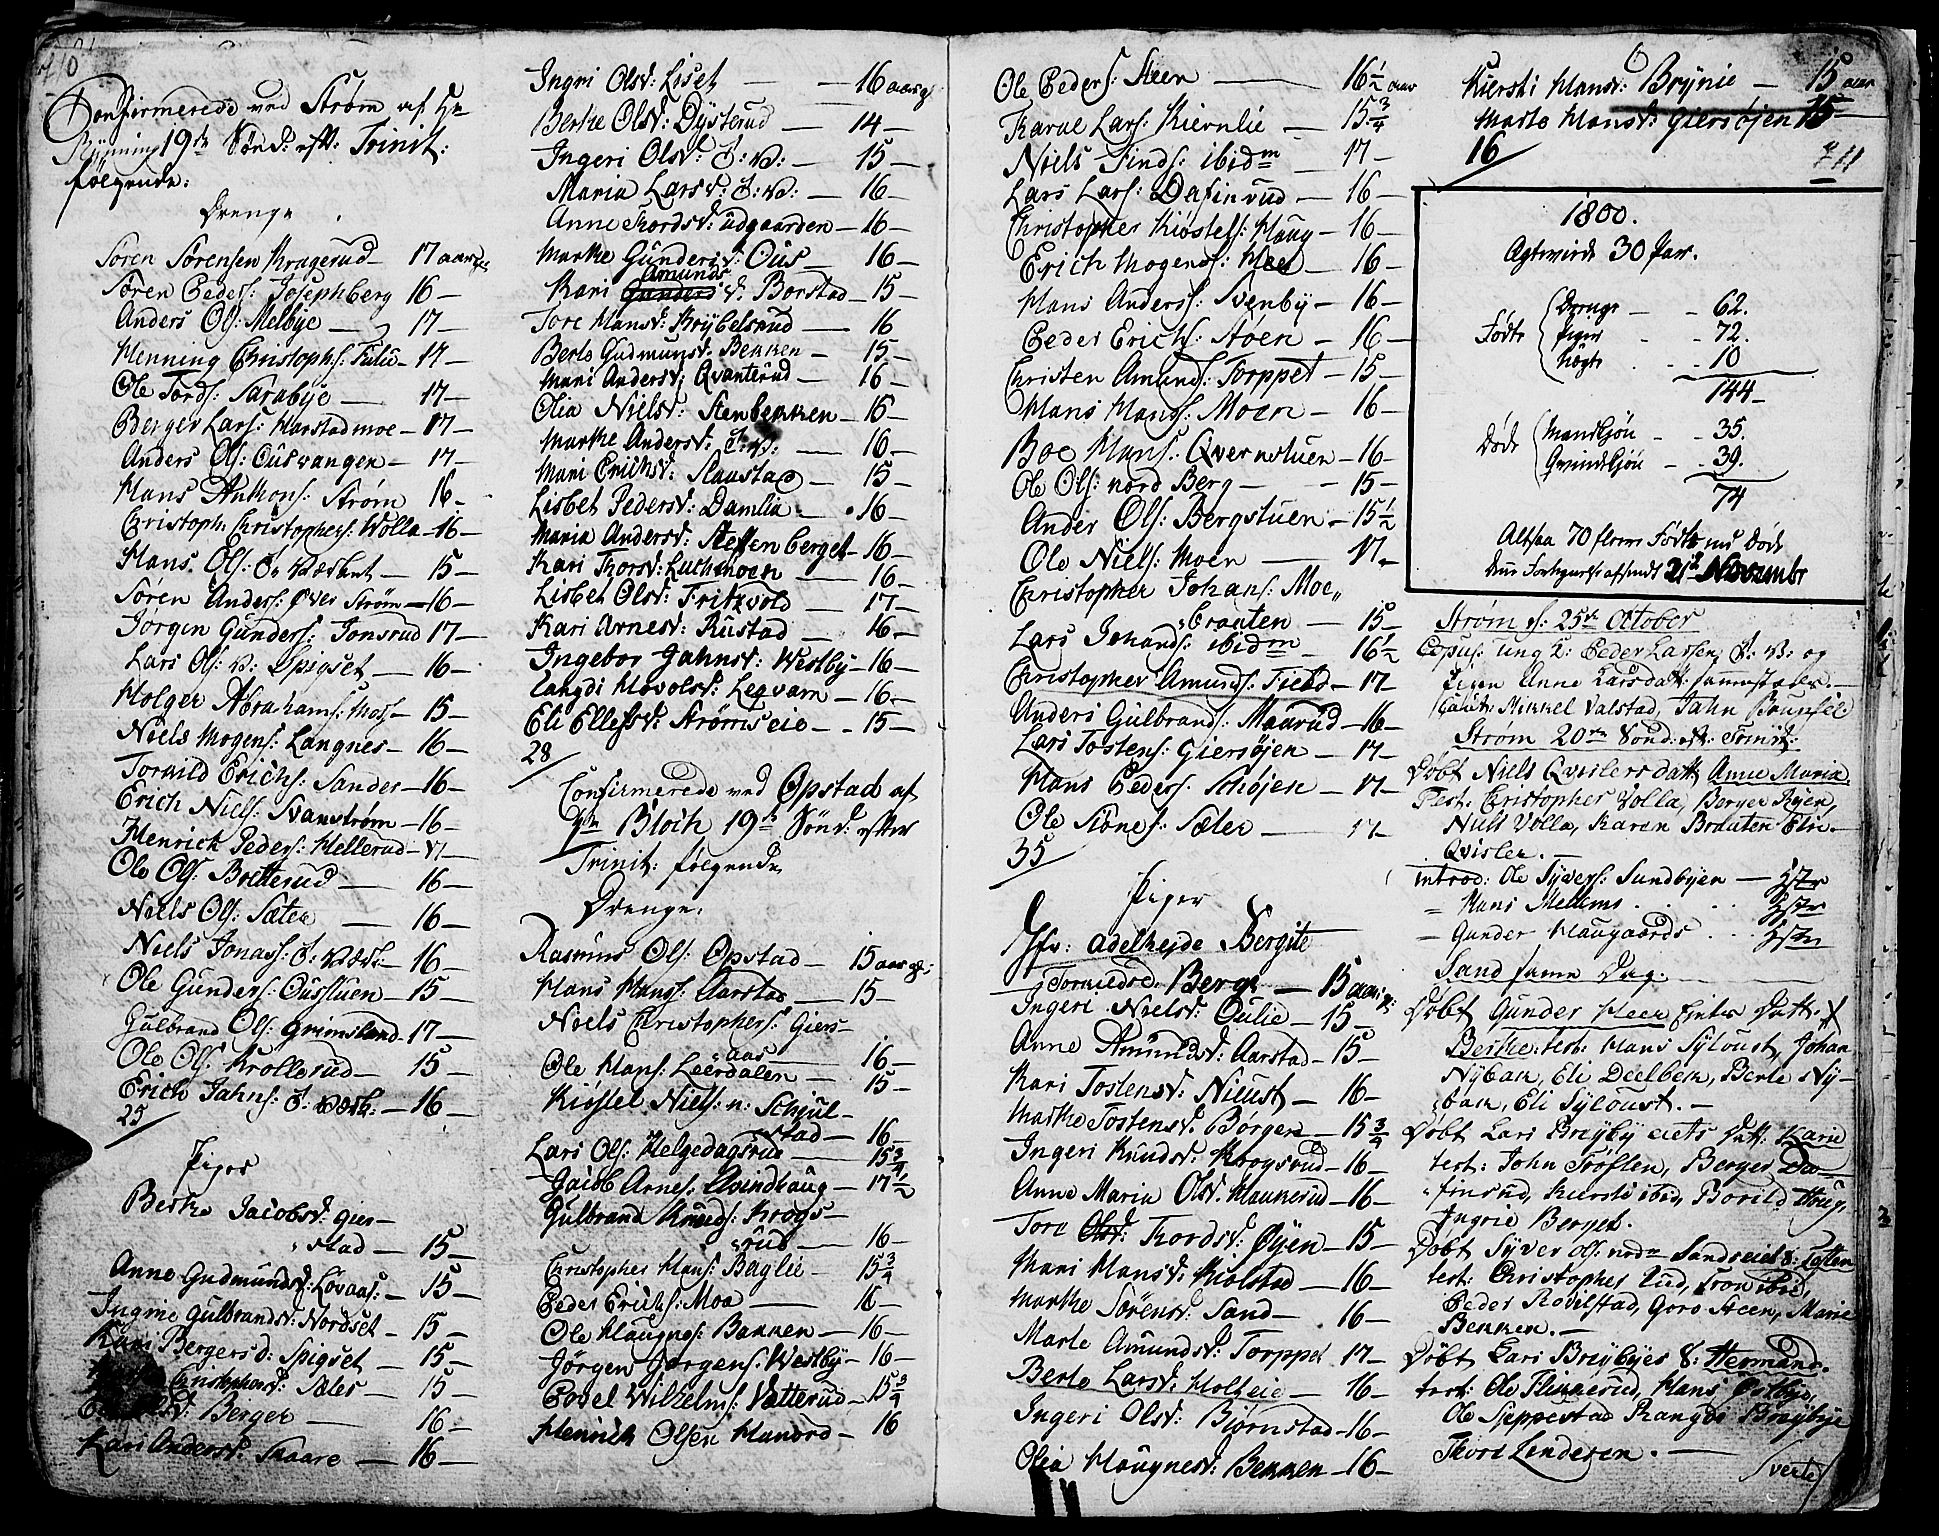 710
Confirmerede ved Strøm af Hr
Rynning 19de Sønd: eft: Trinit:
følgende:
Drenge
Søren Sørensen Kragerud 17 aar
Søren Peders: Josephberg 16 –
Anders Ols: Melbye – 17 –
Henning Christophs: 17 –
Ole Tords: Sarabye – 17 –
Berger Lars: Harstadmoe – 17 –
Anders Ols: Ousvangen – 17 –
Hans Anthons: Strøm 16 –
Christoph: Christophers: Wolla – 16 –
Hans Ols: O: Værket – 15 –
Søren Anders: Øver Strøm – 16 –
Jørgen Gunders: Jonsrud 17 –
Lars Ols: v: Spigset – 16 –
Holger Abrahams: Moss – 15 –
Niels Mogens: Langnes – 16 –
Torkild Erichs: Sander – 16 –
Erich Niels: Svanstrøm – 16 –
Henrich Peders: Hellerud – 17 –
Ole Ols: Bretterud – 16 –
Niels Ols: Sæter – 16 –
Niels Jonas: O: Værk: – 16 –
Ole Gunders: Ousstuen – 15 –
Gulbrand Ols: Grimsland – 17 –
Ole Ols: Krollerud – 15 –
Erich Jahns: O: Værk: – 16 –
25
Piger
Berthe Jacobsd: Gier-
stad – 15 –
Anne Gudmundsd: Lovaas: – 15 –
Ingrine Gulbrandsd: Nordset – 15 –
Kari Bergersd: Spigset – 15 –
Christophersd: Sæter – 15 –
Olsd: Berger – 16 –
Kari Andersd: Skaare – 16 –
Ingri Olsd: Liset – 16 aar g:
Berthe Olsd: Dysterud – 14 –
Ingeri Olsd: O: V: – 15 –
Maria Larsd: O: V: – 16 –
Anne Thordsd: Udgaarden – 16 –
Marthe Gundersd: Ous – 16 –
Amunds
Kari Gunders d: Borstad – 15 –
Tore Hansd: Krybelsrud – 16
Berte Gudmunsd: Bekken – 15 –
Mari Andersd: Qvanterud – 16 –
Olia Nielsd: Stenbekken – 16 –
Marthe Andersd: O: V: – 16 –
Mari Erichsd: Slaastad – 15 –
Lisbet Pedersd: Damlia – 16 –
Maria Andersd: Steffenberget – 16 –
Kari Thorsd: Luthmoen – 16 –
Lisbet Olsd: Fritzvold – 17 –
Kari Arnesd: Rustad – 16 –
Ingebor Jahnsd: Westby – 16 –
Rangdi Hovolsd: Legvarn – 16 –
Eli Ellefsd: Strømseie – 15 –
28
Confirmerede ved Opstad af
Hr Bloch 19de Sønd: efter
Trinit: følgende
Drenge:
Rasmus Ols: Opstad – 15 aar g:
Hans Hans: Aarstad – 15 –
Niels Christophers: Giers-
aas – 16 –
Ole Hans: Leerdalen – 15 –
Kiøstel Niels: n: Schiul-
stad – 16 –
Lars Ols: Helgedagsrud – 15 3/4
Jacob Arnes: Qvindhaug – 17 1/2
Gulbrand Knuds: Krogs-
rud – 16 –
Christopher Hans: Baglie – 15 3/4
Peder Erichs: Moe – 16 –
Ole Haugnes: Bakken – 16 –
Jørgen Jørgens: Westby – 16 –
Povel Wilhelms: Vætterud – 15 3/4
Henrich Olsen Hanord – 16
Ole Peders: Steen – 16 1/2 aar
Karue Lars: Kiernlie – 15 3/4
Niels Finds: ibidm – 17 –
Lars Lars: Dafinrud – 16 –
Christopher Kiøstels: Haug – 16 –
Erich Mogens: Heer – 16 –
Hans Anders: Svenby – 16 –
Peder Erichs: Aoen – 16 –
Christen Amunds: Torppet – 15 –
Hans Hans: Moen – 16 –
Boe Hans: Qvernstuen – 16 –
Ole Ols: nord Berg – 15 –
Ander Ols: Bergstuen – 15 1/2
Ole Niels: Moen – 17 –
Christopher Johans: Moe„
„braaten – 15 –
Lars Johands: ibidm – 16 1/2
Christopher Amunds: Field – 17 –
Anders Gulbrands: Maarud – 16 –
Lars Tostens: Giersøjen – 17 –
Hans Peders: Schøjen – 17 –
Ole Stones: Sæter – 17 –
35
Piger
Jfr: Adelhejde Bergite
Torkieldsd: Berge – 15 aar g:
Ingeri Nielsd: Oulie – 15 –
Anne Amundsd: Aarstad – 15 –
Kari Tostensd: Nieust – 16 –
Marthe Tostensd: Børgen – 15 3/4
Ingeri Knudsd: Krogsrud – 16 –
Anne Maria Olsd: Haukerud – 16 –
Tore Olsd: Thordsd: Øyen – 15 –
Mari Hansd: Kiolstad – 16 –
Marthe Sørensd: Sand – 16 –
Marte Amundsd: Torppet 17 –
Berte Larsd: Holteie – 16 –
Ingeri Olsd: Bjørnstad – 16 –
Olia Haugnesd: Bekken – 16 –
Kiersti Hansd: Brynie – 15 aar
Marte Hansd: Giersøjen 15 –
16
711
1800.
Ægtevirde 30 Par.
Fødte
Drenge – 62.
Piger – 72.
Uægte – 10
144 –
Døde
Mandkjøn – 35.
Qvindekjøn – 39.
74
Altsaa 70 flere Fødte end Døde
21de November
Strøm d: 25de October
Copul: ung k: Peder Larsen O: V: og
Pigen Anne Larsdatt:
Caut: Mikkel Valstad, Jahn
Strøm 20de Sønd: eft: Trinit:
Døbt Niels Qvislersdatt Anne Maria
Test: Christopher Volla, Berger Ryen,
Niels Volla, Karen Braaten Elie
Qvisler. –
introd: Ole Syvers: Sundbyen –
= Hans Mellems
– Gunder Haugaards
Sand samme Dag.
Døbt Gunder Heer Eiets Datt. X
Berthe: test: Hans Syloust, Johan
Nybak, Eli Deelbek, Berte Ny-
bak, Eli Syloust. –
Døbt Lars Brøyby eiets Datt. Karie
test: John Trøften, Berger Da-
finsud, Kiersti ibid, Borild Haug,
Ingrie Berget.
Døbt Syver Ols: nord Sandseiet S: Tosten
test: Christopher Lud, Aron ibid,
Peder Rovilstad, Goro Steen, Marie
Bekken. –
Døbt Lars Brøybyes S: Hermand.
test: Ole Flikkerud, Hans Østbye,
Ole Seppestad Rangdi Brøybye
Thore Lenderen. –
verte